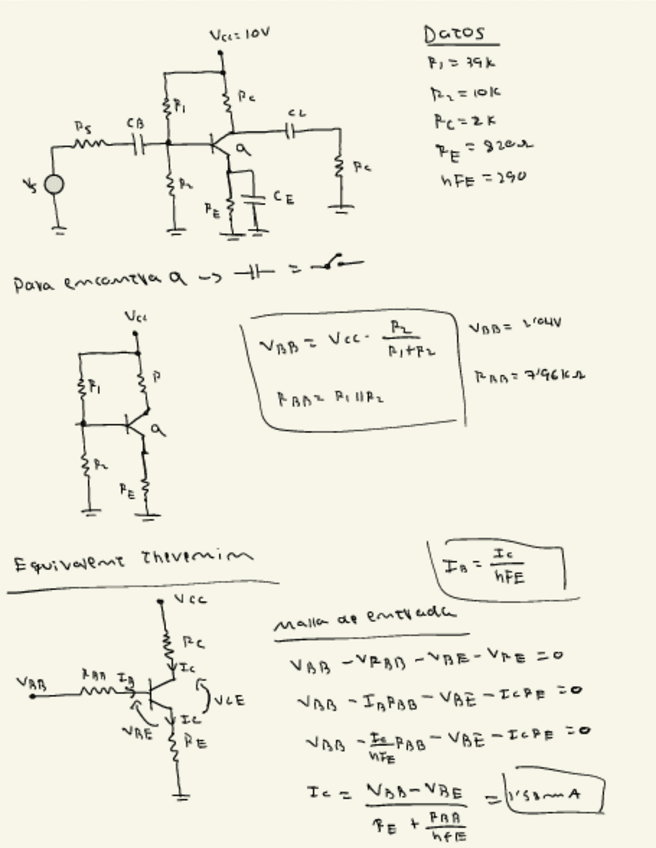 Vcc=10V
Datos
R1 = 39K
R2 = 10K
RC = 2K
RE = 820Ω
hFE = 290
RS
CB
R1
RC
CL
Q
VS
R2
RE
CE
RC
Para encontra Q -> ⊣⊢ =
VCC
R1
R
Q
R2
RE
VBB = VCC · R2 / R1+R2
RBB = R1 || R2
VBB = 2'04V
RBB = 7'96KΩ
Equivalent Thevenin
IB = IC / hFE
VCC
RC
IC
VBB
RBB
IB
VCE
VBE
IC
RE
Malla de entrada
VBB - VRBB - VBE - VRE = 0
VBB - IBRBB - VBE - ICRE = 0
VBB - IC/hFE RBB - VBE - ICRE = 0
IC = VBB - VBE / RE + RBB/hFE = 1'58mA